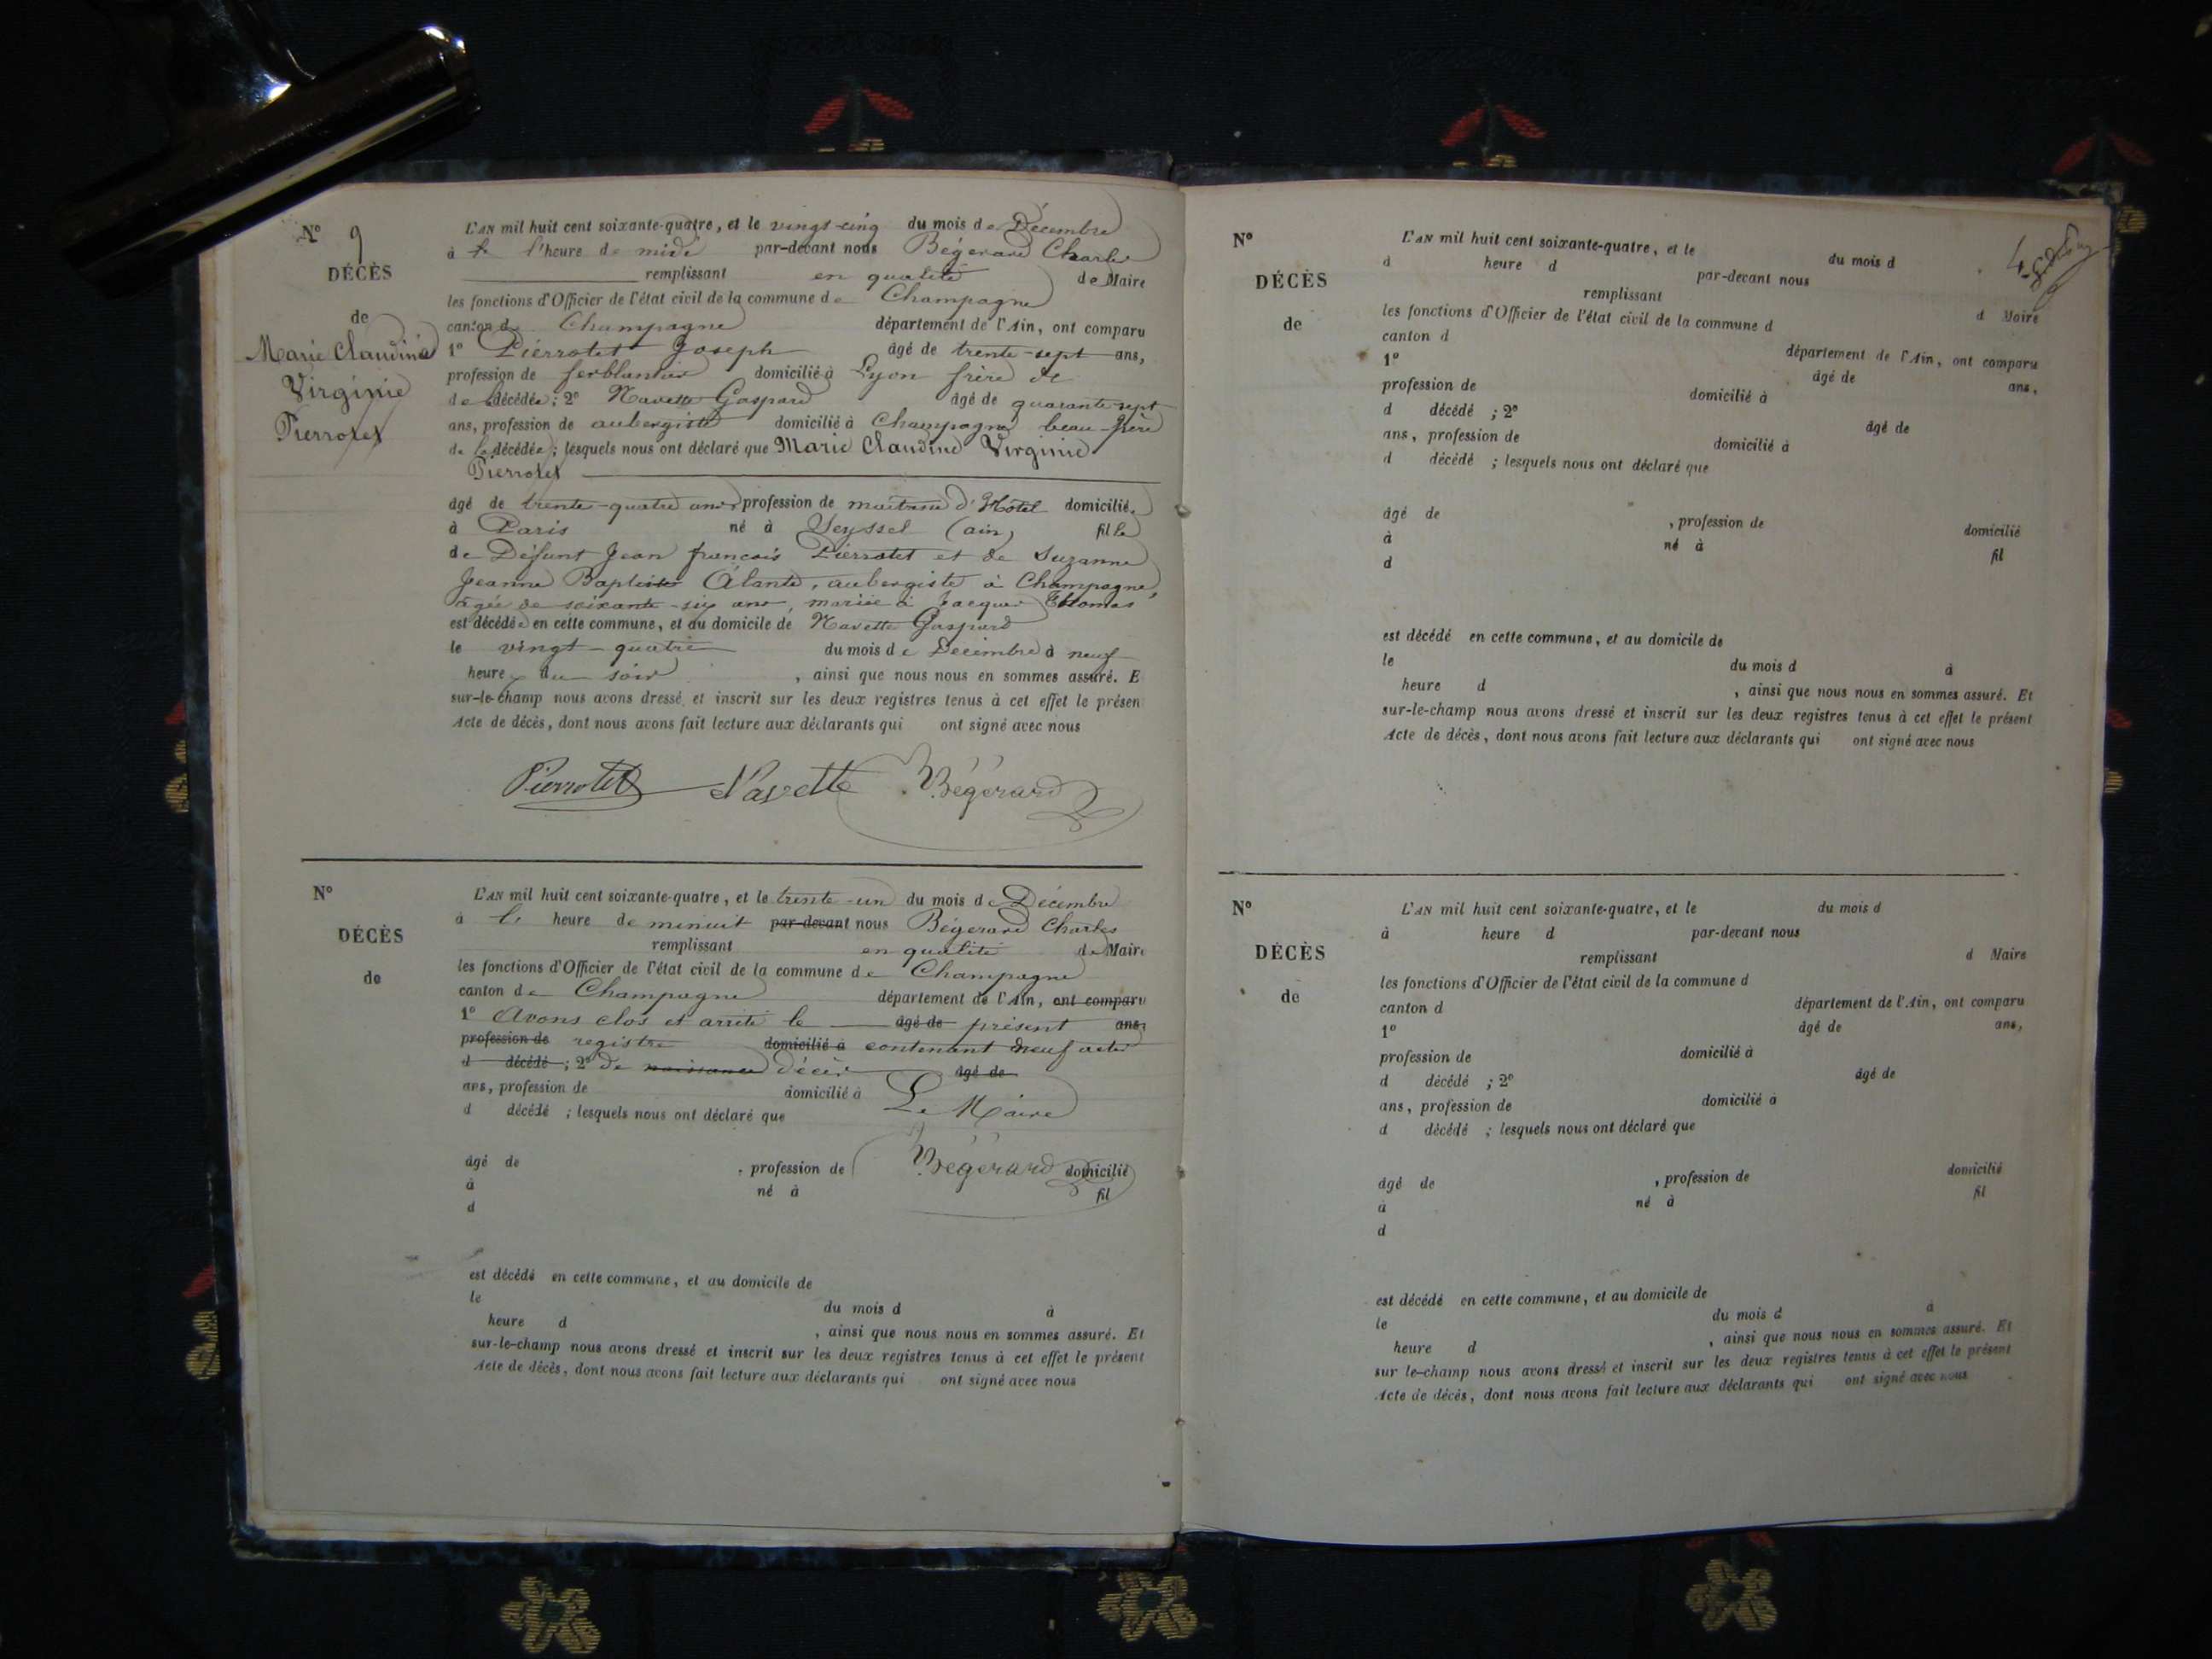 N° 9
DÉCÈS
de
Marie Claudine
Virginie
Pierrotet
L'AN mil huit cent soixante-quatre, et le vingt-cinq du mois de Décembre
à l'heure de midi par-devant nous Bégerard Charles
remplissant en qualité de Maire
les fonctions d'Officier de l'état civil de la commune de Champagne
canton de Champagne département de l'Ain, ont comparu
1° Pierrotet Joseph âgé de trente-sept ans,
profession de ferblantier domicilié à Lyon frère de
de décédée; 2° Navette Gaspard âgé de quarante-sept
ans, profession de aubergiste domicilié à Champagne beau-frère
de la décédée; lesquels nous ont déclaré que Marie Claudine Virginie
Pierrotet
âgé de trente-quatre ans, profession de maitresse d'Hôtel domicilié
à Paris né à Seyssel (ain) fille
de Défunt Jean françois Pierrotet et de Suzanne
Jeanne Baptiste Alante, aubergiste à Champagne,
agée de soixante-six ans, mariée à Jacques Thomas
est décédée en cette commune, et au domicile de Navette Gaspard
le vingt-quatre du mois de Décembre à neuf
heures du soir, ainsi que nous nous en sommes assuré. E
sur-le-champ nous avons dressé et inscrit sur les deux registres tenus à cet effet le présen
Acte de décès, dont nous avons fait lecture aux déclarants qui ont signé avec nous
Pierrotet Navette Bégerard
N°
DÉCÈS
de
L'AN mil huit cent soixante-quatre, et le trente-un du mois de Décembre
à heure de minuit par-devant nous Bégerard Charles
remplissant en qualité de Maire
les fonctions d'Officier de l'état civil de la commune de Champagne
canton de Champagne département de l'Ain, ont comparu
1° Avons clos et arrêté le âgé de présent ans,
profession de registre domicilié à contenant neuf actes
d décédé; 2° de naissance décès âgé de
ans, profession de domicilié à Le Maire
d décédé ; lesquels nous ont déclaré que
âgé de , profession de Bégerard domicilié
à né à fil
d
est décédé en cette commune, et au domicile de
le du mois d à
heure d , ainsi que nous nous en sommes assuré. Et
sur-le-champ nous avons dressé et inscrit sur les deux registres tenus à cet effet le présent
Acte de décès, dont nous avons fait lecture aux déclarants qui ont signé avec nous
N°
DÉCÈS
de
L'AN mil huit cent soixante-quatre, et le du mois d
à heure d par-devant nous
remplissant d Maire
les fonctions d'Officier de l'état civil de la commune d
canton d département de l'Ain, ont comparu
1° âgé de ans,
profession de domicilié à
d décédé ; 2° âgé de
ans, profession de domicilié à
d décédé ; lesquels nous ont déclaré que
âgé de , profession de domicilié
à né à fil
d
est décédé en cette commune, et au domicile de
le du mois d à
heure d , ainsi que nous nous en sommes assuré. Et
sur-le-champ nous avons dressé et inscrit sur les deux registres tenus à cet effet le présent
Acte de décès, dont nous avons fait lecture aux déclarants qui ont signé avec nous
N°
DÉCÈS
de
L'AN mil huit cent soixante-quatre, et le du mois d
à heure d par-devant nous
remplissant d Maire
les fonctions d'Officier de l'état civil de la commune d
canton d département de l'Ain, ont comparu
1° âgé de ans,
profession de domicilié à
d décédé ; 2° âgé de
ans, profession de domicilié à
d décédé ; lesquels nous ont déclaré que
âgé de , profession de domicilié
à né à fil
d
est décédé en cette commune, et au domicile de
le du mois d à
heure d , ainsi que nous nous en sommes assuré. Et
sur le-champ nous avons dressé et inscrit sur les deux registres tenus à cet effet le présent
Acte de décès, dont nous avons fait lecture aux déclarants qui ont signé avec nous